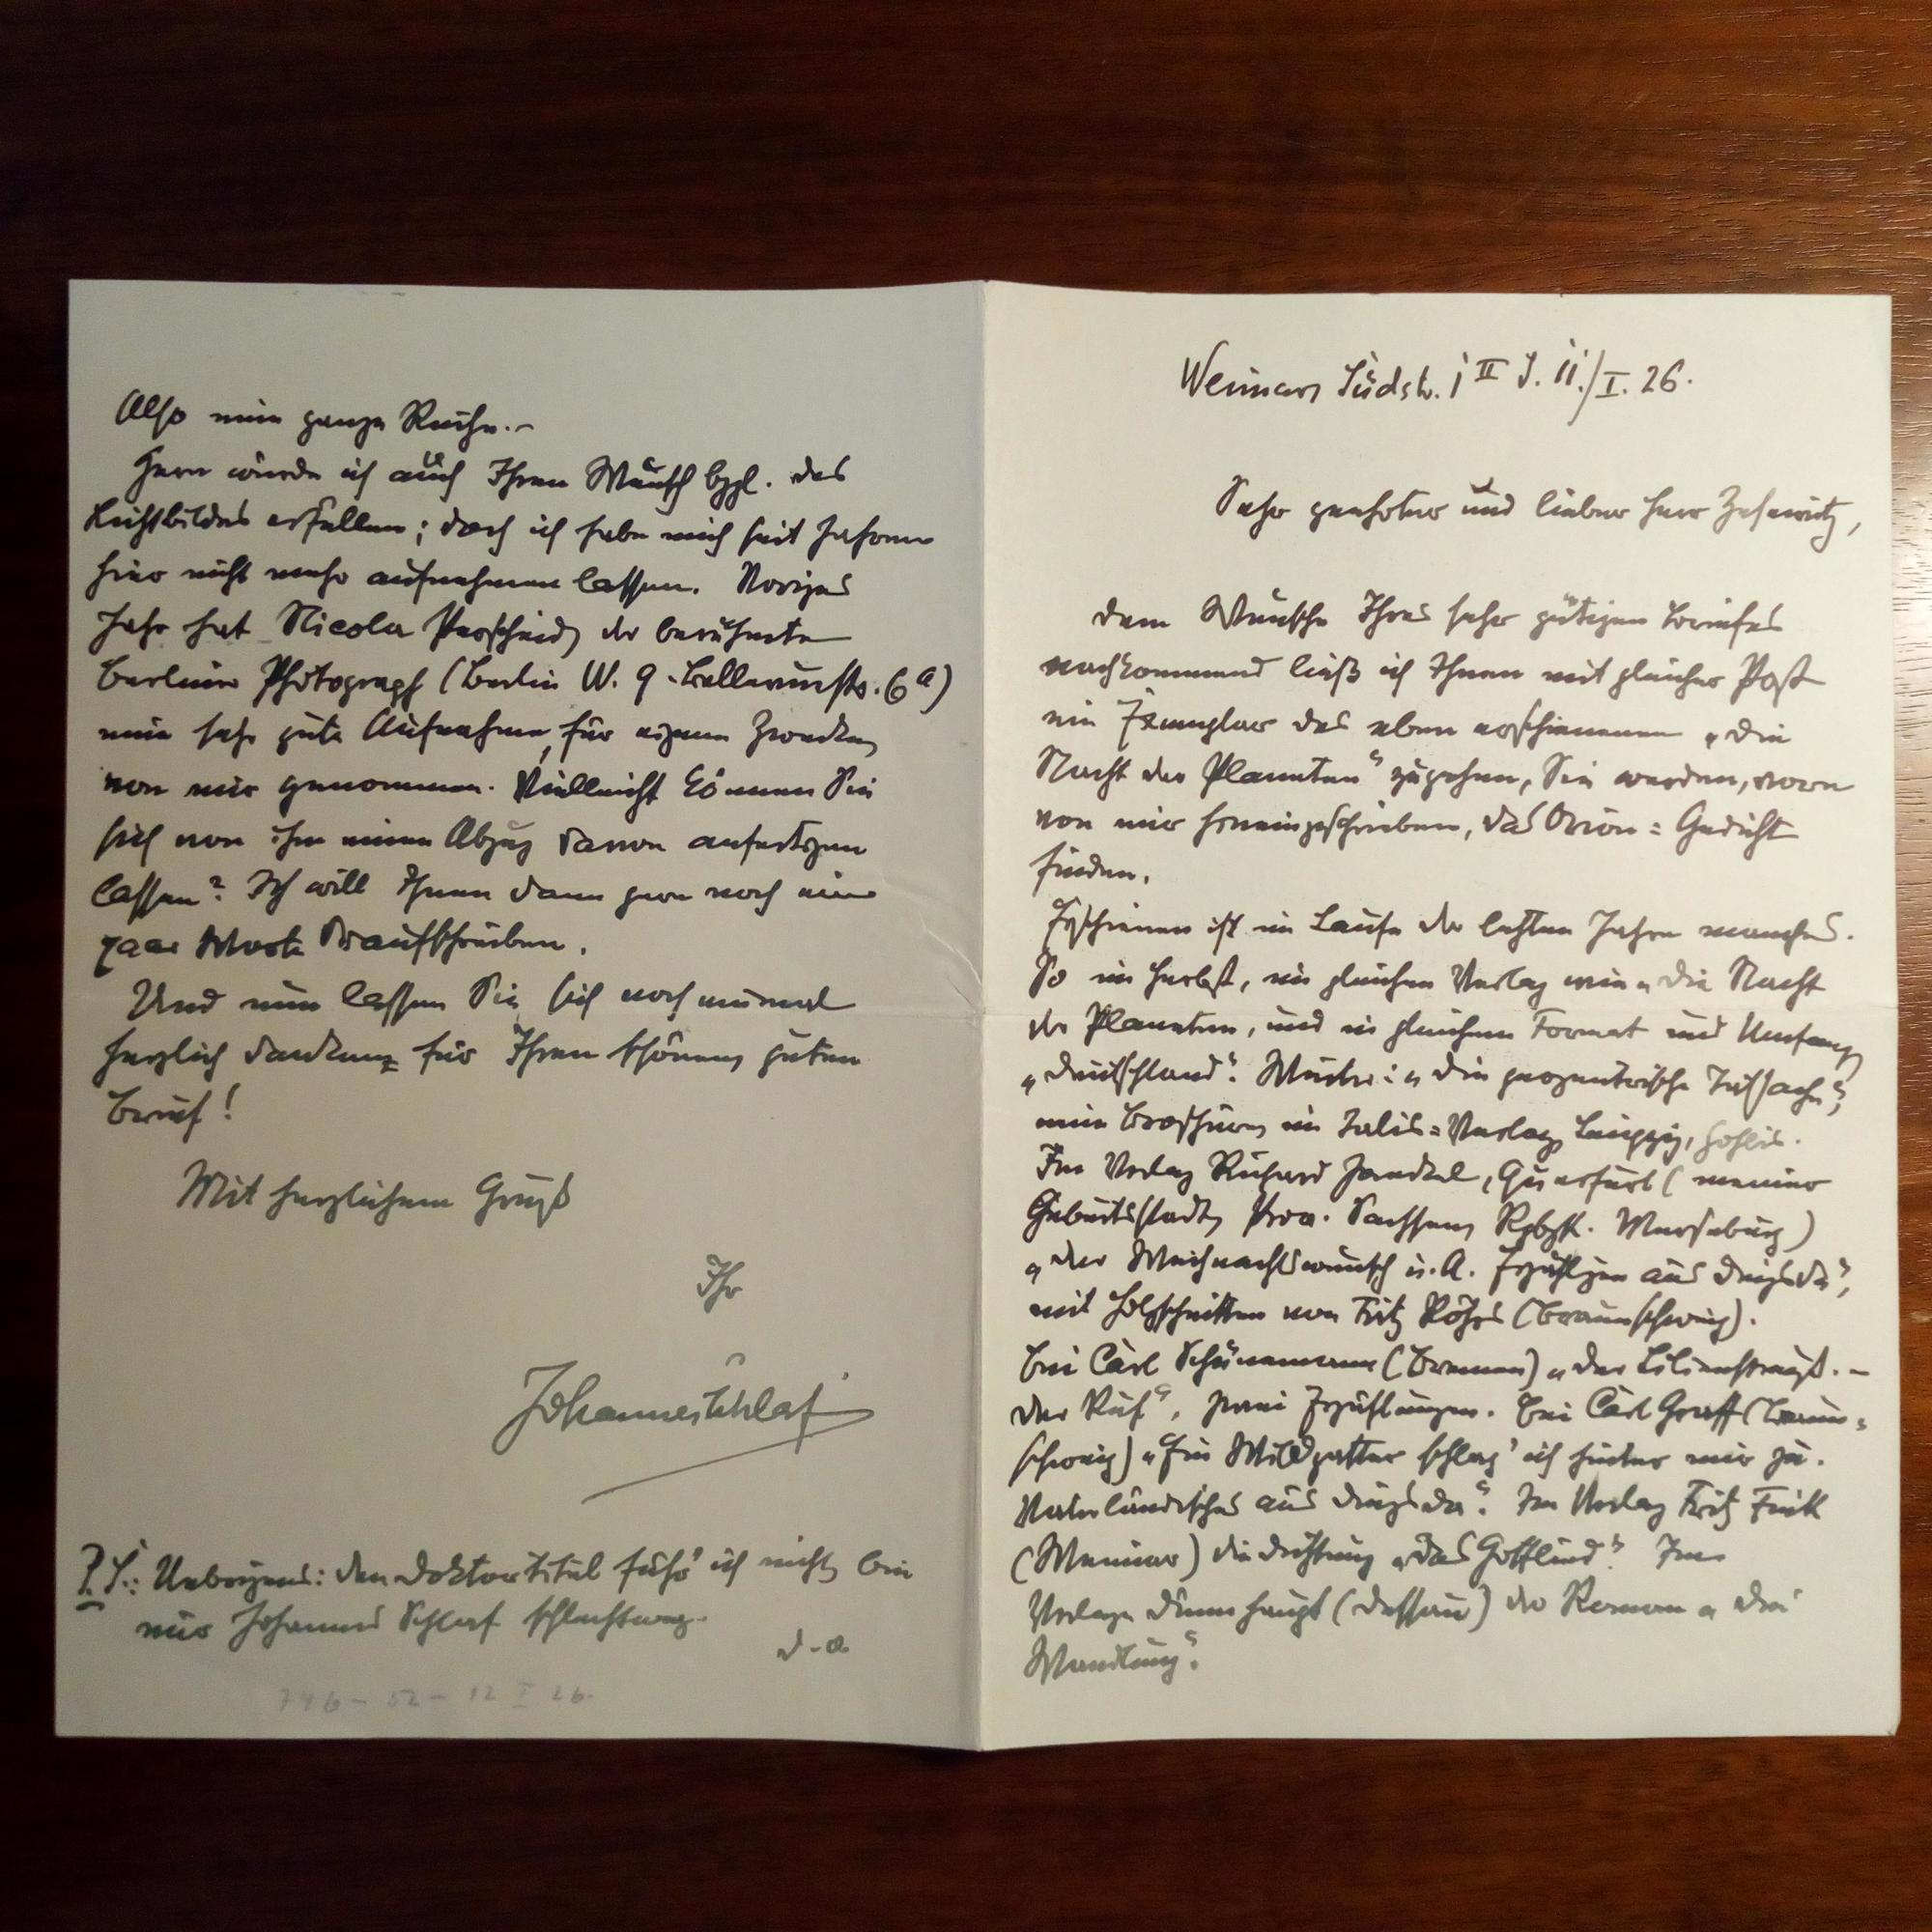 Weimar, Südstr. 1 II d. 11./I. 26.
Sehr geehrter und lieber Herr
dem Wunsche Ihres sehr gütigen Briefes
nachkommend ließ ich Ihnen mit gleicher Post
ein Exemplar des eben erschienenen „Die
Nacht der Planeten“ zugehen, Sie werden, vorn
von mir hineingeschrieben, das Orion=Gedicht
finden.
Erschienen ist im Laufe der letzten Jahre manches.
So im Herbst, im gleichen Verlag wie „Die Nacht
der Planeten, und in gleichem Format und Umfang
„Deutschland“. Weiter: „Die geozentrische Tatsache“,
eine Broschüre, im Verlag, Leipzig, Gohlis.
Im Verlag Richard Jaeckel, Querfurt (meiner
Geburtsstadt, Prov. Sachsen, Rgbzk. Merseburg)
„Der Weihnachtswunsch u. A. Erzählgen aus Dingsda“,
mit Holzschnitten von Fritz Röhrs (Braunschweig).
Bei Carl Schünemann (Bremen) „Der Lilienstrauß. –
Der Ruf“, zwei Erzählungen. Bei Carl Graff (Braun=
schweig) „Ein Wildgatter schlag' ich hinter mir zu.
Vaterländisches aus Dingsda“. Im Verlag Fritz Fink
(Weimar) die Dichtung „Das Gottlied“. Im
Verlage Dünnhaupt (Dessau) der Roman „Die
Wandlung“.
Also eine ganze Reihe. –
Gern würde ich auch Ihren Wunsch bzgl. des
Lichtbildes erfüllen; doch ich habe mich seit Jahren
hier nicht mehr aufnehmen lassen. Voriges
Jahr hat Nicola Perscheid, der berühmte
Berliner Photograph (Berlin W. 9. Bellevuestr. 6a)
eine sehr gute Aufnahme, für eigene Zwecke,
von mir genommen. Vielleicht können Sie
sich von ihm einen Abzug davon anfertigen
lassen? Ich will Ihnen dann gern noch ein
paar Worte draufschreiben.
Und nun lassen Sie sich noch einmal
herzlich danken für Ihren schönen, guten
Brief!
Mit herzlichem Gruß
Ihr
Johannes Schlaf
P.S.: Uebrigens: den Doktortitel führ' ich nicht, bin
nur Johannes Schlaf schlechtweg.
D. O.
746 – 52 – 12 I 26.